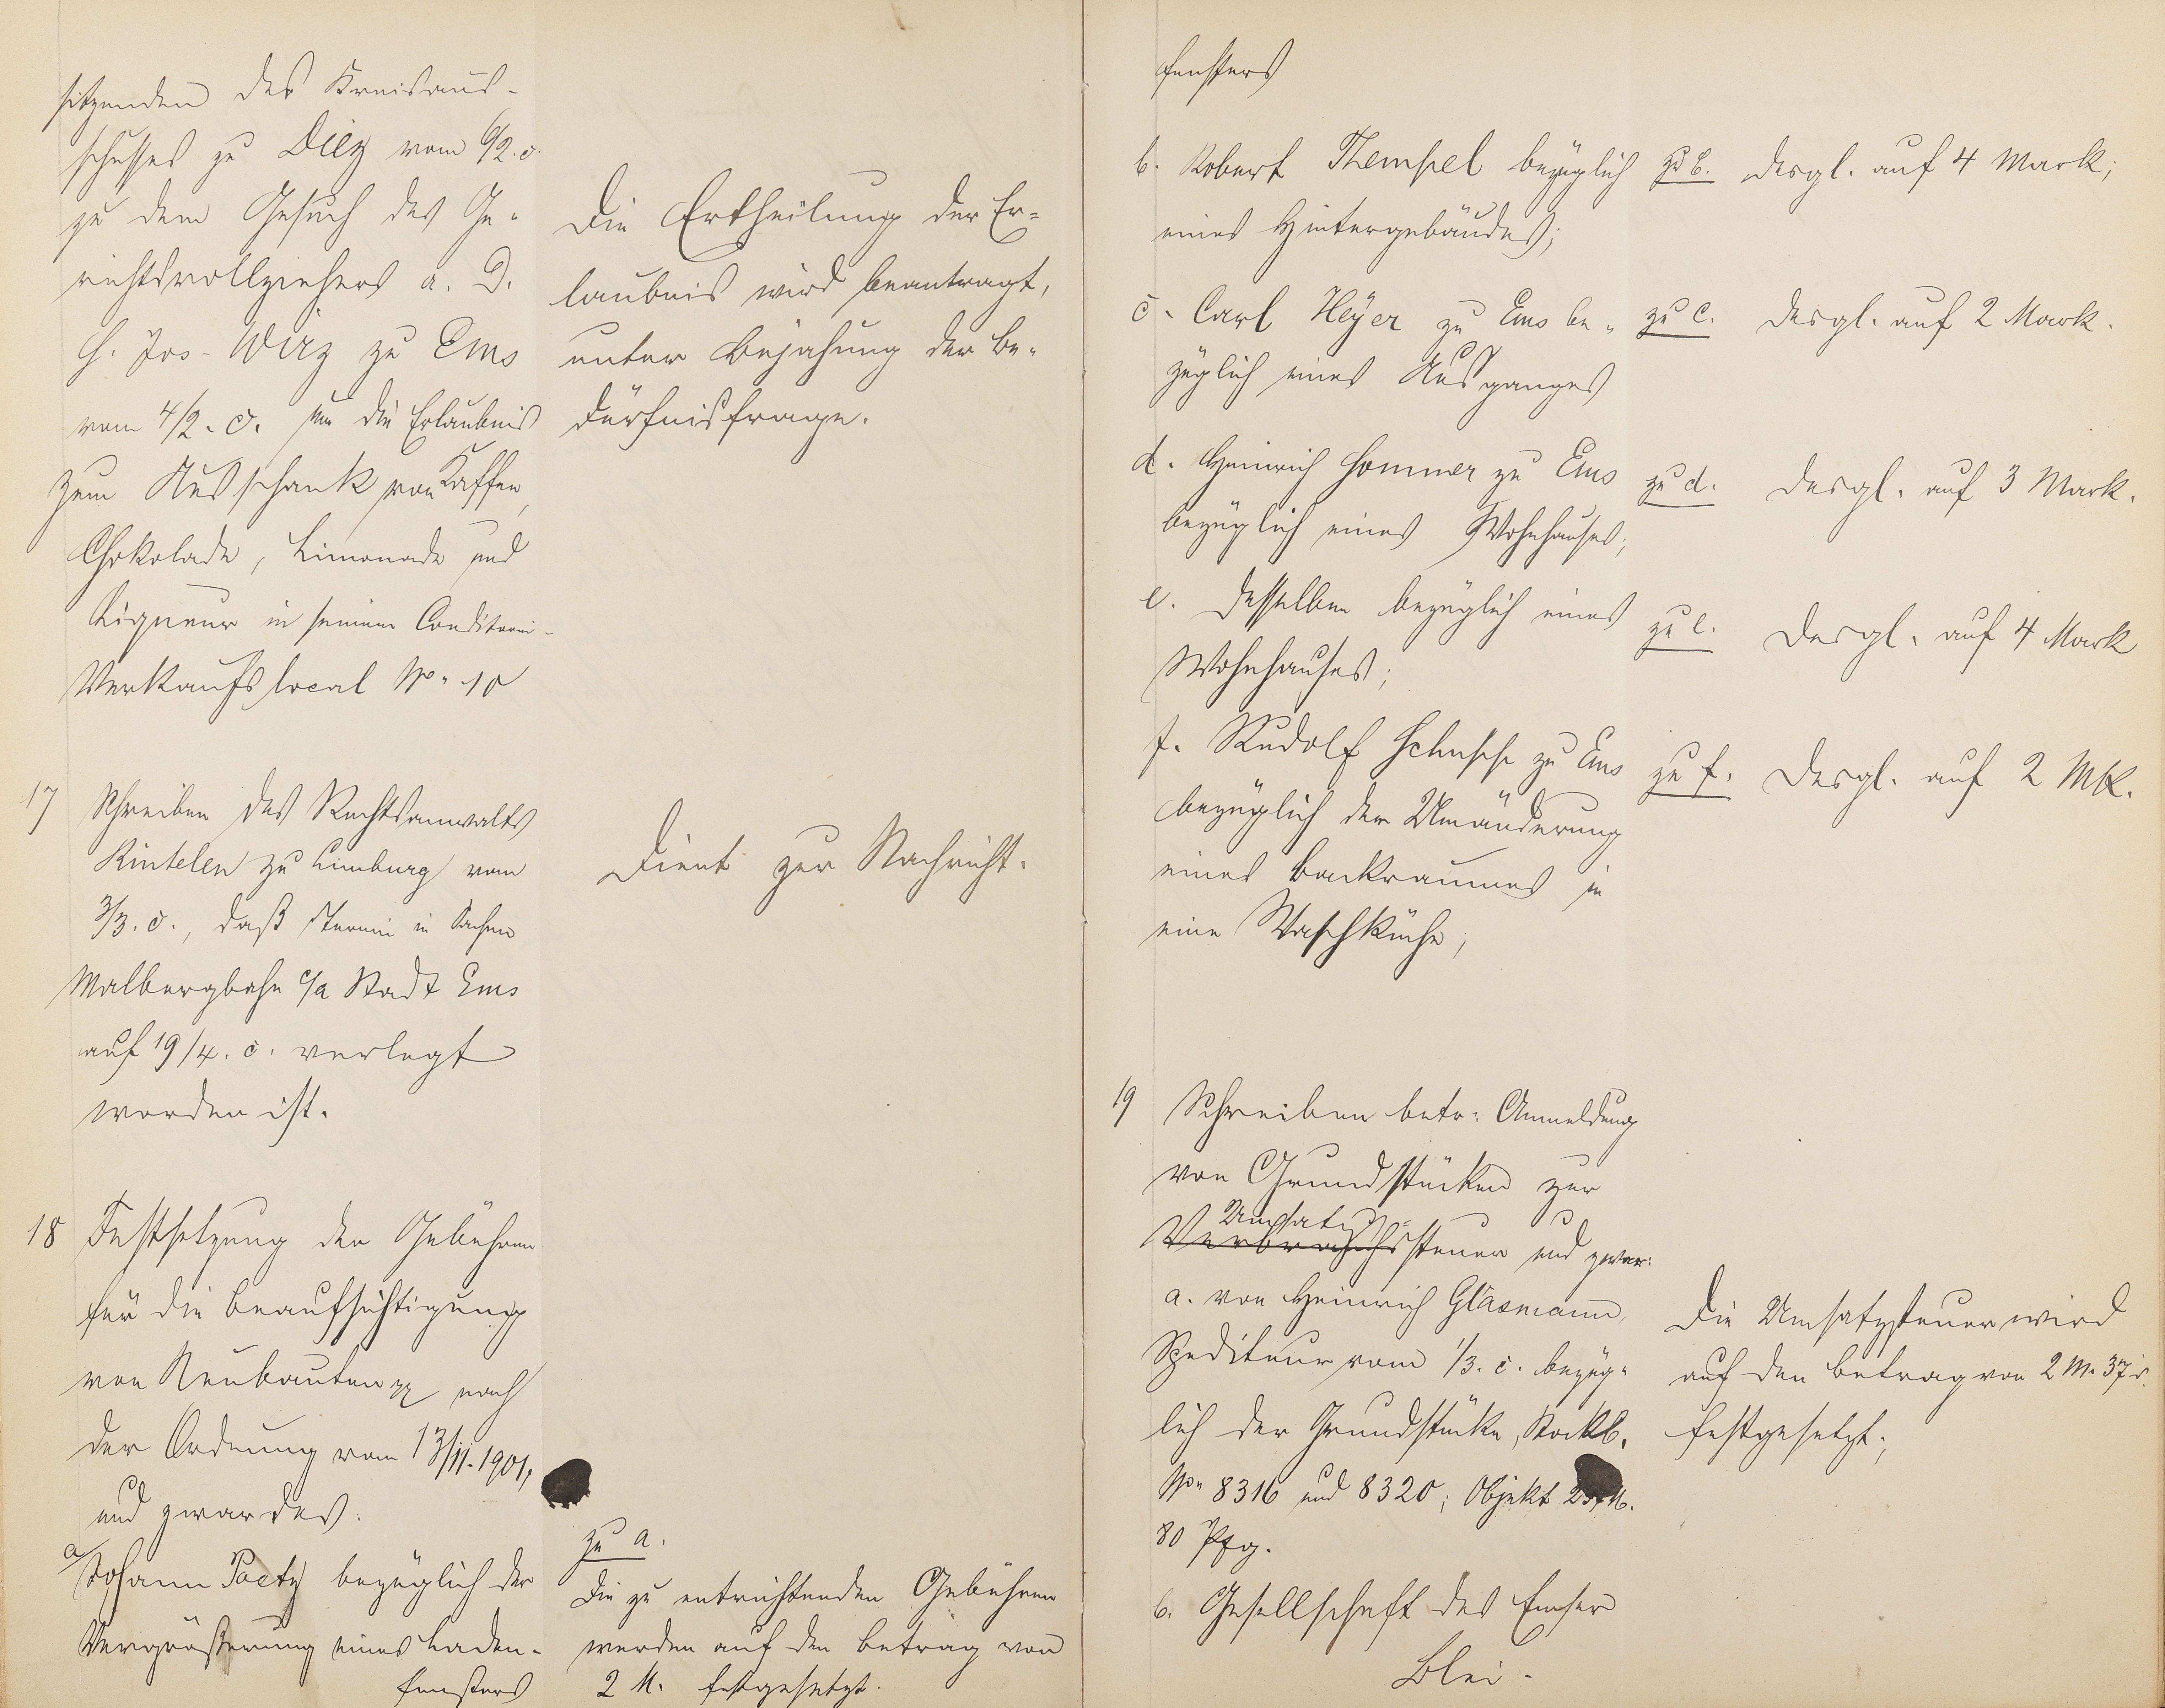 sitzenden des Kreisaus-
schusses zu Diez vom 6/2. c.
zu dem Gesuch des Ge-
richtsvollziehers a. D.
H. Jos. Wirz zu Ems
vom 4/2. c. um die Erlaubnis
zum Ausschank von Kaffee,
Chokolade, Limonade und
Liqueur in seinem Conditorei-
Verkaufslocal No. 10
Die Ertheilung der Er-
laubnis wird beantragt,
unter Bejahung der Be-
dürfnisfrage.
17 Schreiben des Rechtsanwalts
Rintelen zu Limburg vom
3/3. c., daß Termin in Sachen
Malbergbahn c/a Stadt Ems
auf 19/4. c. verlegt
worden ist.
Dient zur Nachricht.
18 Festsetzung der Gebühren
für die Beaufsichtigung
von Neubauten pp nach
der Ordnung vom 13/11. 1901,
und zwar des:
a/ Johann Paetz bezüglich der
Vergrößerung eines Laden-
fensters
zu a.
Die zu entrichtenden Gebühren
werden auf den Betrag von
2 M. festgesetzt.
fensters
b. Robert Thempel bezüglich
eines Hintergebäudes;
zu b. desgl. auf 4 Mark;
c. Carl Heyer zu Ems be-
züglich eines Ausganges
zu c. desgl. auf 2 Mark.
d. Heinrich Sommer zu Ems
bezüglich eines Wohnhauses;
zu d. desgl. auf 3 Mark.
e. desselben bezüglich eines
Wohnhauses;
zu e. desgl. auf 4 Mark
f. Rudolf zu Ems
bezüglich der Umänderung
eines Backraumes in
eine Waschküche;
zu f. desgl. auf 2 Mk.
19 Schreiben betr: Anmeldung
von Grundstücken zur
Umsatz-
Verbrauchssteuer und zwar:
a. von Heinrich Glasmann,
Spediteur vom 1/3. c. bezüg-
lich der Grundstücke, Stockb.
No. 8316 und 8320; Objekt M.
80 Pfg.
Die Umsatzsteuer wird
auf den Betrag von 2 M. 37 d.
festgesetzt;
b. Gesellschaft des Emser
Blei-